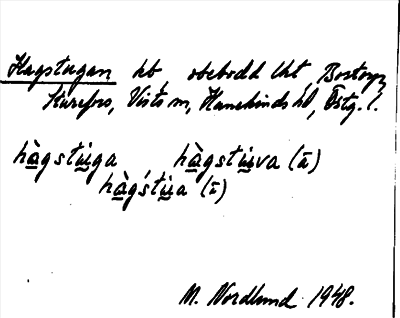 Hagstugan hb, obebodd lht Bostorp,
Kurefors, Vists sn, Hanekinds hd, Östg. l.
hàgstùga hàgstùva (ā)
hàgstùa (ī)
M. Nordlund 1948.